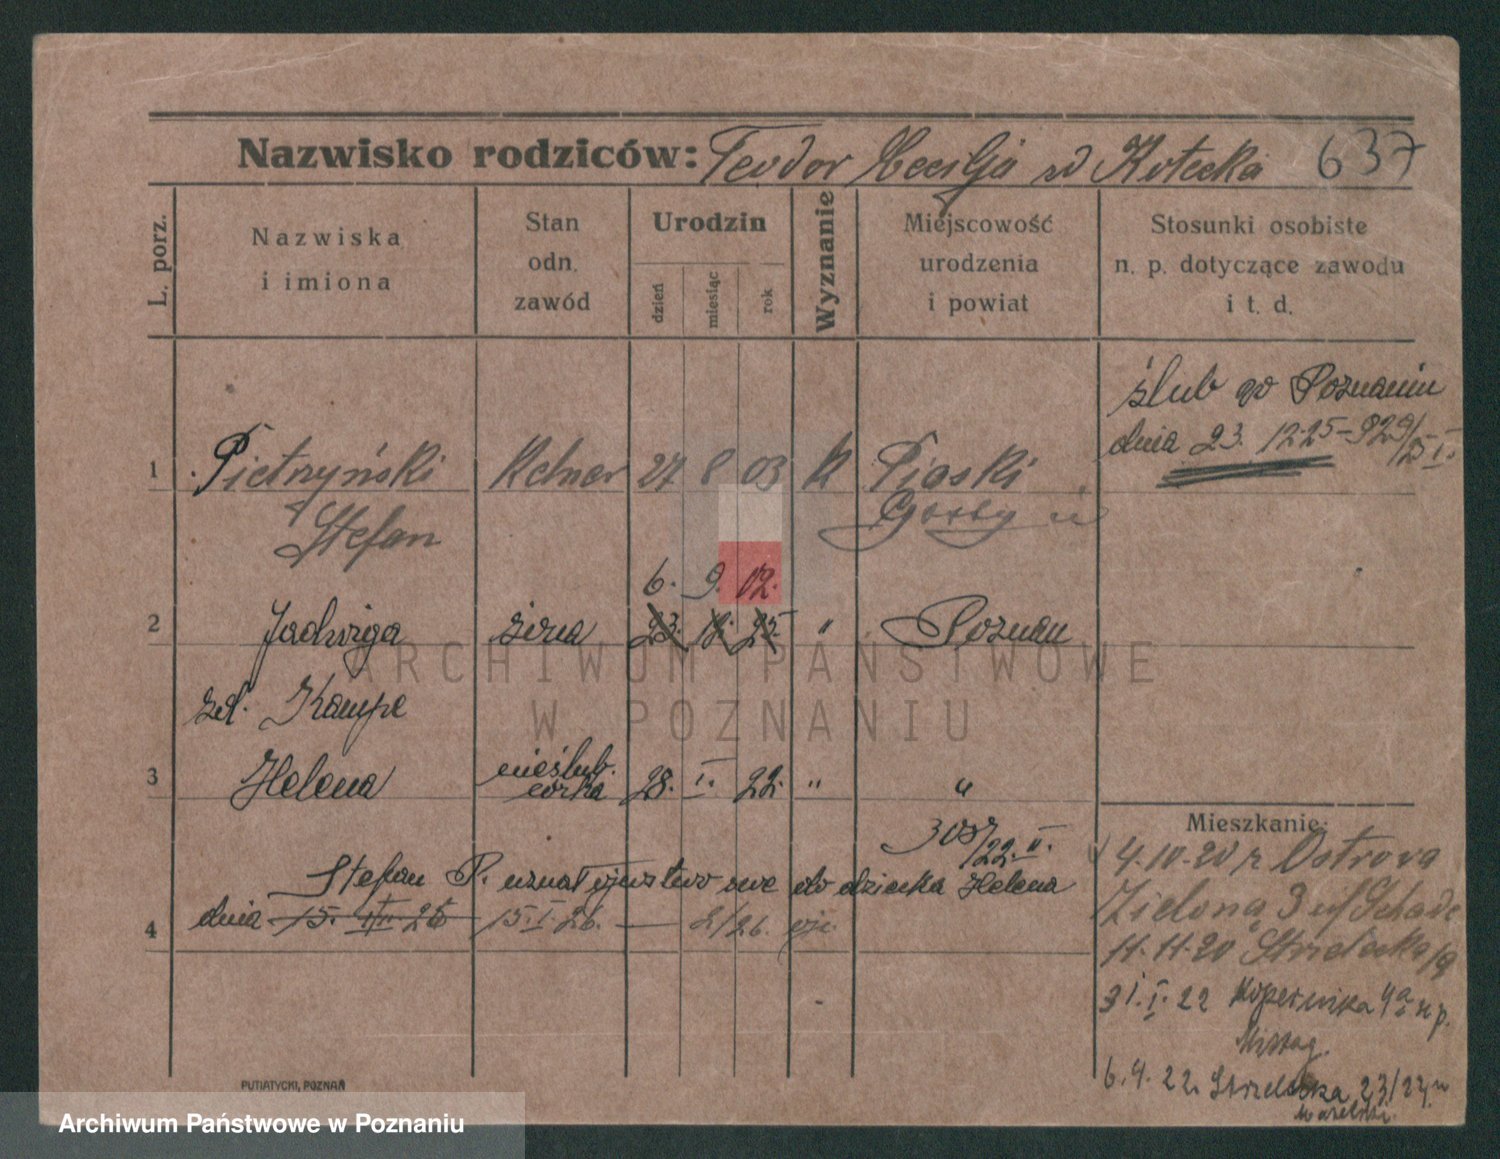 Nazwisko rodziców: Teodor Cecylja zd Kotecka 637
L. porz.
Nazwiska
i imiona
Stan
odn.
zawód
Urodzin
dzień
miesiąc
rok
Wyznanie
Miejscowość
urodzenia
i powiat
Stosunki osobiste
n. p. dotyczące zawodu
i t. d.
ślub w Poznaniu
dnia 23. 12.25
1 Pietrzyński Kelner 27 8 03 K Piaski
Stefan
6. 9. 02.
2 Jadwiga żona 23. 12. 25 " Poznań
zd. Kampe
3 Helena nieślub. 28. I. 22. " "
córka
Stefan P. uznał ojcostwo swe do dziecka Helena
4 dnia 15. 15.I.26. 2/26.
Mieszkanie:
4.10.20 z Ostrova
Zielona 3
11.11.20 Strzelecka
31.I.22 Kopernika 4a
6.4.22. Strzelecka 23/24
PUTIATYCKI, POZNAŃ
ARCHIWUM PAŃSTWOWE
W POZNANIU
Archiwum Państwowe w Poznaniu